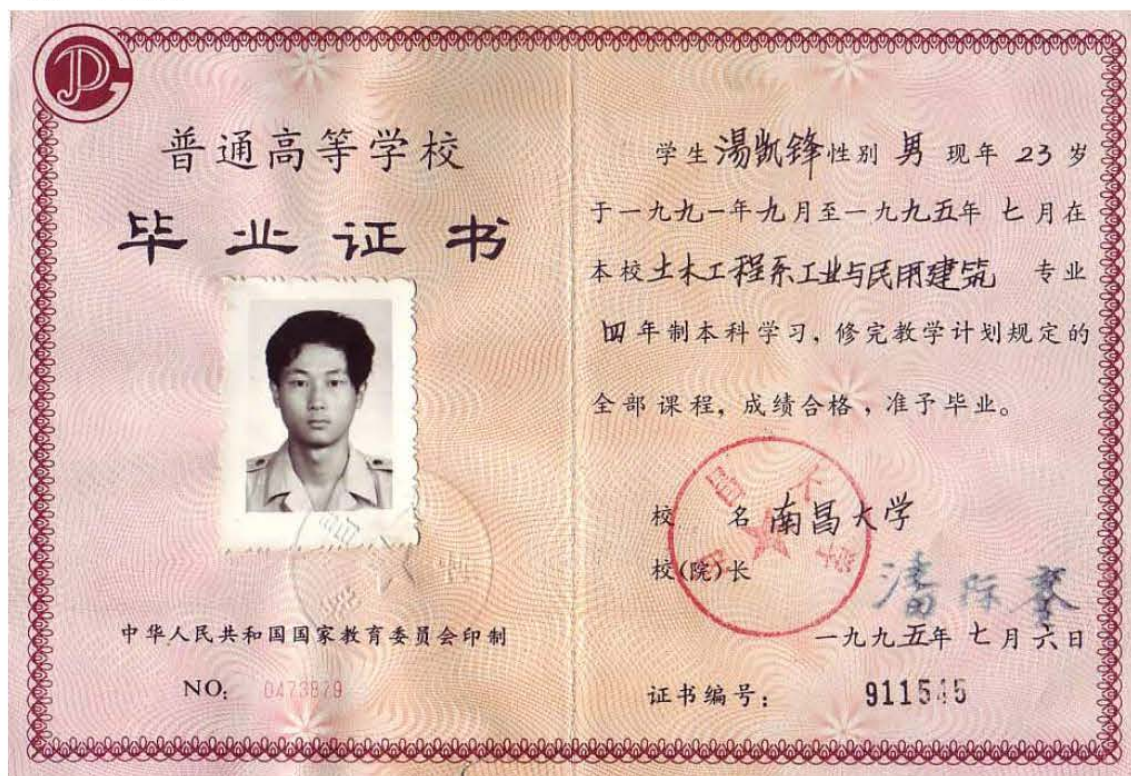 普通高等学校
毕业证书
中华人民共和国国家教育委员会印制
NO: 0473879
学生湯凯锋性别 男 现年 23 岁
于一九九一年九月至一九九五年 七月在
本校土木工程系工业与民用建筑 专业
四年制本科学习,修完教学计划规定的
全部课程,成绩合格,准予毕业。
校 名 南昌大学
校(院)长 潘际銮
一九九五年 七月六日
证书编号: 911545
南昌大学